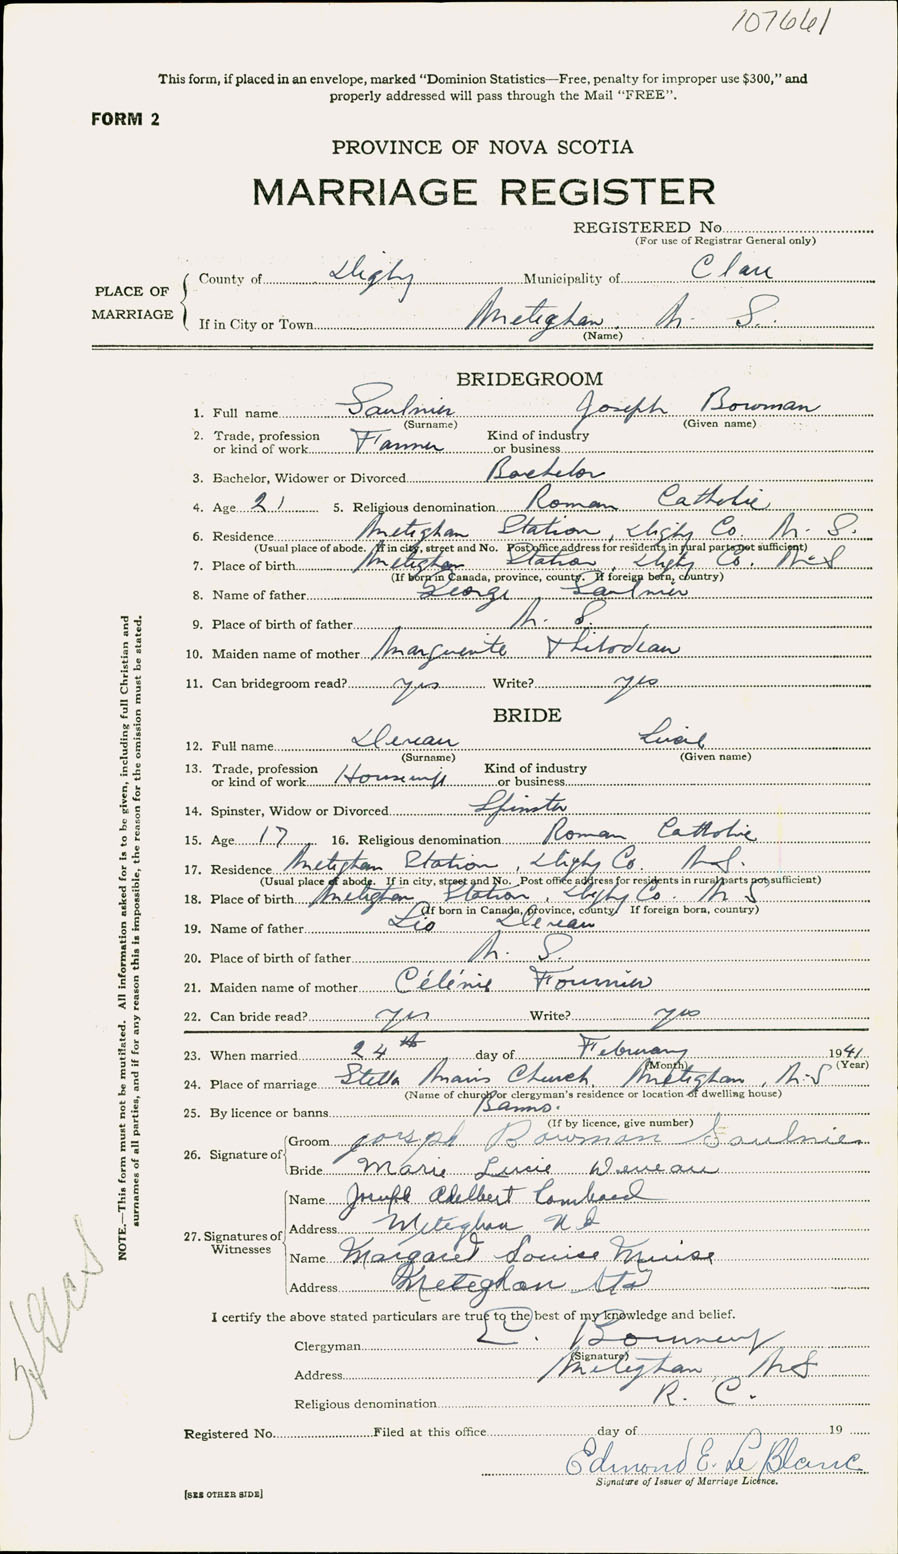 107661
This form, if placed in an envelope, marked "Dominion Statistics—Free, penalty for improper use $300," and
properly addressed will pass through the Mail "FREE".
FORM 2
PROVINCE OF NOVA SCOTIA
MARRIAGE REGISTER
REGISTERED No.
(For use of Registrar General only)
PLACE OF MARRIAGE
County of Digby Municipality of Clare
If in City or Town Meteghan, N. S.
(Name)
BRIDEGROOM
1. Full name Saulnier Joseph Bowman
(Surname) (Given name)
2. Trade, profession or kind of work Farmer Kind of industry or business
3. Bachelor, Widower or Divorced Bachelor
4. Age 21 5. Religious denomination Roman Catholic
6. Residence Meteghan Station, Digby Co. N. S.
(Usual place of abode. If in city, street and No. Post office address for residents in rural parts not sufficient)
7. Place of birth Meteghan Station, Digby Co. N. S
(If born in Canada, province, county. If foreign born, country)
8. Name of father George Saulnier
9. Place of birth of father N. S.
10. Maiden name of mother Marguerite Thibodeau
11. Can bridegroom read? yes Write? yes
BRIDE
12. Full name Deveau Lucie
(Surname) (Given name)
13. Trade, profession or kind of work Housewife Kind of industry or business
14. Spinster, Widow or Divorced Spinster
15. Age 17 16. Religious denomination Roman Catholic
17. Residence Meteghan Station, Digby Co. N. S.
(Usual place of abode. If in city, street and No. Post office address for residents in rural parts not sufficient)
18. Place of birth Meteghan Station, Digby Co. N. S
(If born in Canada, province, county. If foreign born, country)
19. Name of father Léo Deveau
20. Place of birth of father N. S.
21. Maiden name of mother Célénie Fournier
22. Can bride read? yes Write? yes
23. When married 24th day of February 1941
(Month) (Year)
24. Place of marriage Stella Maris Church, Meteghan, N. S
(Name of church or clergyman's residence or location of dwelling house)
25. By licence or banns Banns.
(If by licence, give number)
26. Signature of
Groom Joseph Bowman Saulnier
Bride Marie Lucie Deveau
27. Signatures of Witnesses
Name Joseph Adelbert Comeau
Address Meteghan N S
Name Margaret Louise Muise
Address Meteghan Sta
I certify the above stated particulars are true to the best of my knowledge and belief.
Clergyman
(Signature)
Address Meteghan, N S
Religious denomination R. C.
Registered No. Filed at this office day of 19
Edmond E. Le Blanc
Signature of Issuer of Marriage Licence.
[SEE OTHER SIDE]
NOTE.—This form must not be mutilated. All information asked for is to be given, including full Christian and
surnames of all parties, and if for any reason this is impossible, the reason for the omission must be stated.